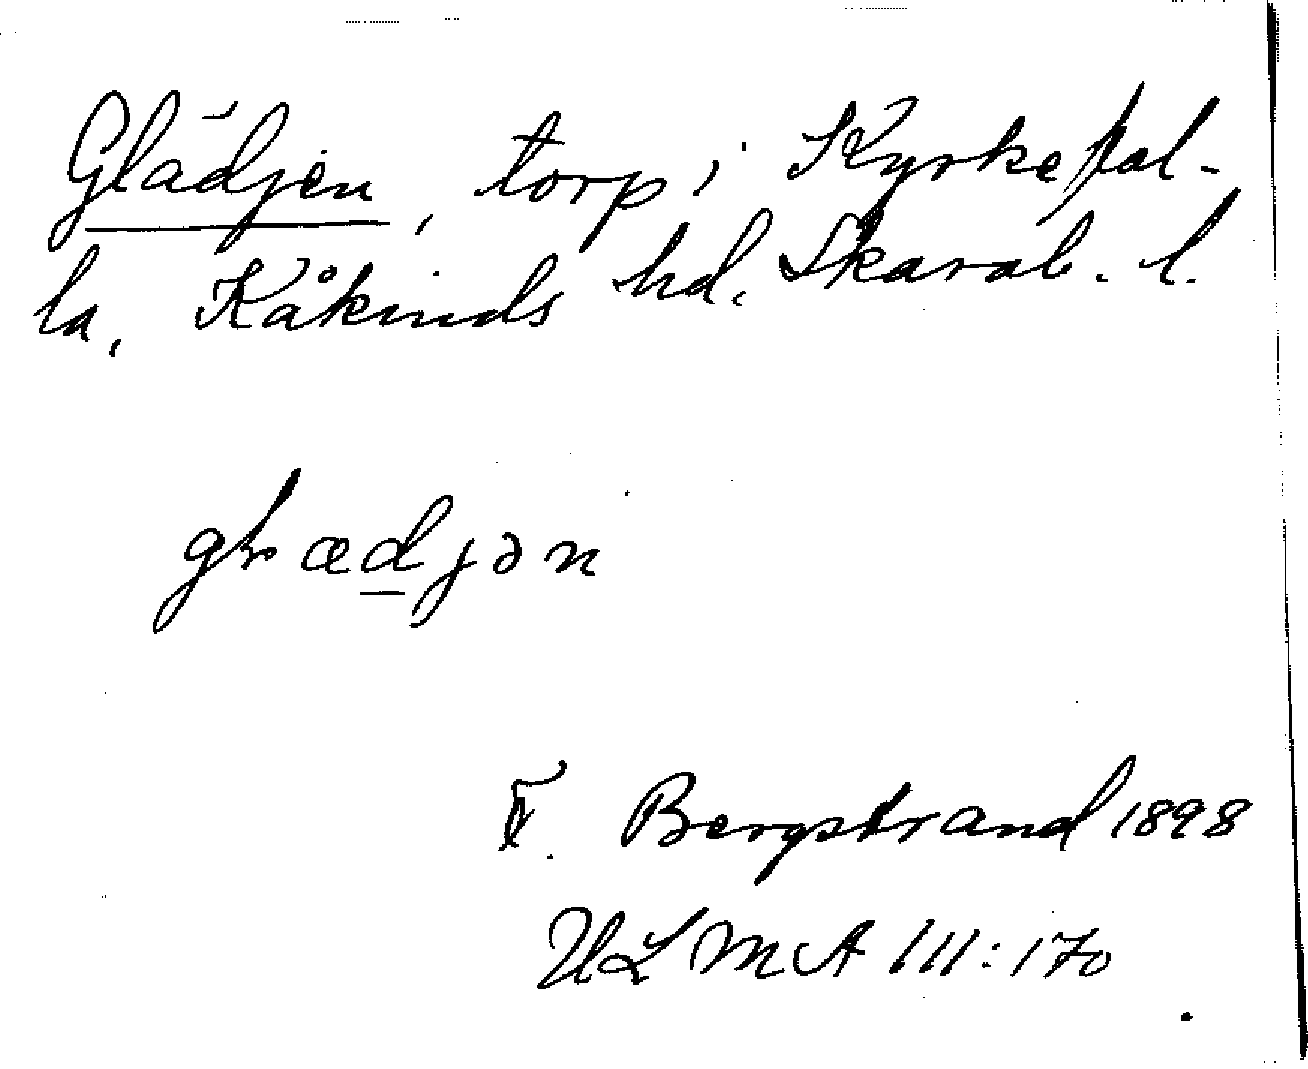 Glädjen, torp i Kyrkefal-
la, Kåkinds hd. Skarab. l.
glædjən
F. Bergstrand 1898
ULMA III:170